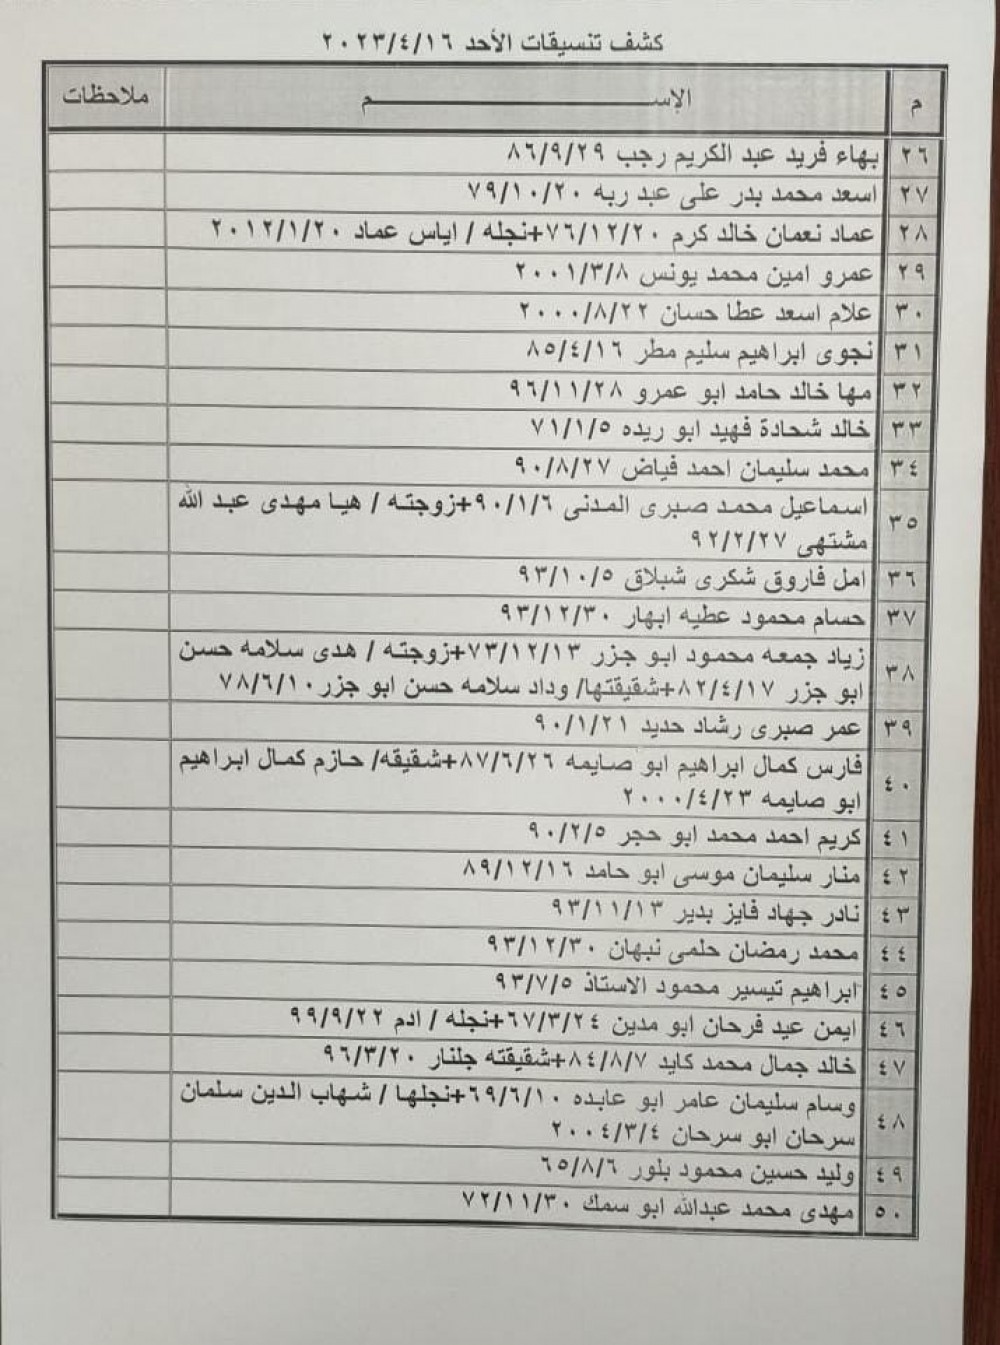 كشف تنسيقات الأحد ٢٠٢٣/٤/١٦
م الإســـــــــــــم ملاحظات
٢٦ بهاء فريد عبد الكريم رجب ٨٦/٩/٢٩
٢٧ اسعد محمد بدر على عبد ربه ٧٩/١٠/٢٠
٢٨ عماد نعمان خالد كرم ٧٦/١٢/٢٠+نجله / اياس عماد ٢٠١٢/١/٢٠
٢٩ عمرو امين محمد يونس ٢٠٠١/٣/٨
٣٠ علام اسعد عطا حسان ٢٠٠٠/٨/٢٢
٣١ نجوى ابراهيم سليم مطر ٨٥/٤/١٦
٣٢ مها خالد حامد ابو عمرو ٩٦/١١/٢٨
٣٣ خالد شحادة فهيد ابو ريده ٧١/١/٥
٣٤ محمد سليمان احمد فياض ٩٠/٨/٢٧
٣٥ اسماعيل محمد صبرى المدنى ٩٠/١/٦+زوجته / هيا مهدى عبد الله
مشتهى ٩٢/٢/٢٧
٣٦ امل فاروق شكرى شبلاق ٩٣/١٠/٥
٣٧ حسام محمود عطيه ابهار ٩٣/١٢/٣٠
٣٨ زياد جمعه محمود ابو جزر ٧٣/١٢/١٣+زوجته / هدى سلامه حسن
ابو جزر ٨٢/٤/١٧+شقيقتها/ وداد سلامه حسن ابو جزر٧٨/٦/١٠
٣٩ عمر صبرى رشاد حديد ٩٠/١/٢١
٤٠ فارس كمال ابراهيم ابو صايمه ٨٧/٦/٢٦+شقيقه/ حازم كمال ابراهيم
ابو صايمه ٢٠٠٠/٤/٢٣
٤١ كريم احمد محمد ابو حجر ٩٠/٢/٥
٤٢ منار سليمان موسى ابو حامد ٨٩/١٢/١٦
٤٣ نادر جهاد فايز بدير ٩٣/١١/١٣
٤٤ محمد رمضان حلمى نبهان ٩٣/١٢/٣٠
٤٥ ابراهيم تيسير محمود الاستاذ ٩٣/٧/٥
٤٦ ايمن عيد فرحان ابو مدين ٦٧/٣/٢٤+نجله / ادم ٩٩/٩/٢٢
٤٧ خالد جمال محمد كايد ٨٤/٨/٧+شقيقته جلنار ٩٦/٣/٢٠
٤٨ وسام سليمان عامر ابو عابده ٦٩/٦/١٠+نجلها / شهاب الدين سلمان
سرحان ابو سرحان ٢٠٠٤/٣/٤
٤٩ وليد حسين محمود بلور ٦٥/٨/٦
٥٠ مهدى محمد عبدالله ابو سمك ٧٢/١١/٣٠